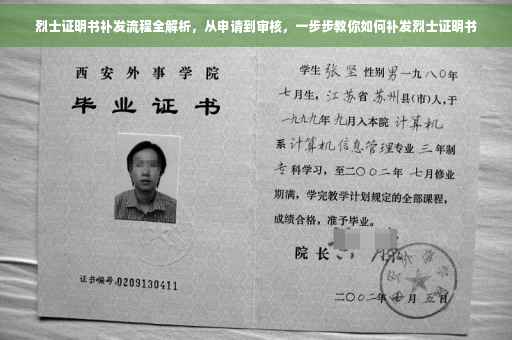 烈士证明书补发流程全解析，从申请到审核，一步步教你如何补发烈士证明书
西安外事学院
毕业证书
证书编号:0209130411
学生 张坚 性别 男 一九八〇年
七月生，江苏省 苏州县(市)人，于
一九九九年 九月入本院 计算机
系 计算机信息管理专业 三 年制
专科学习，至二〇〇二年 七月修业
期满，学完教学计划规定的全部课程，
成绩合格，准予毕业。
院长
二〇〇二年 月 五日